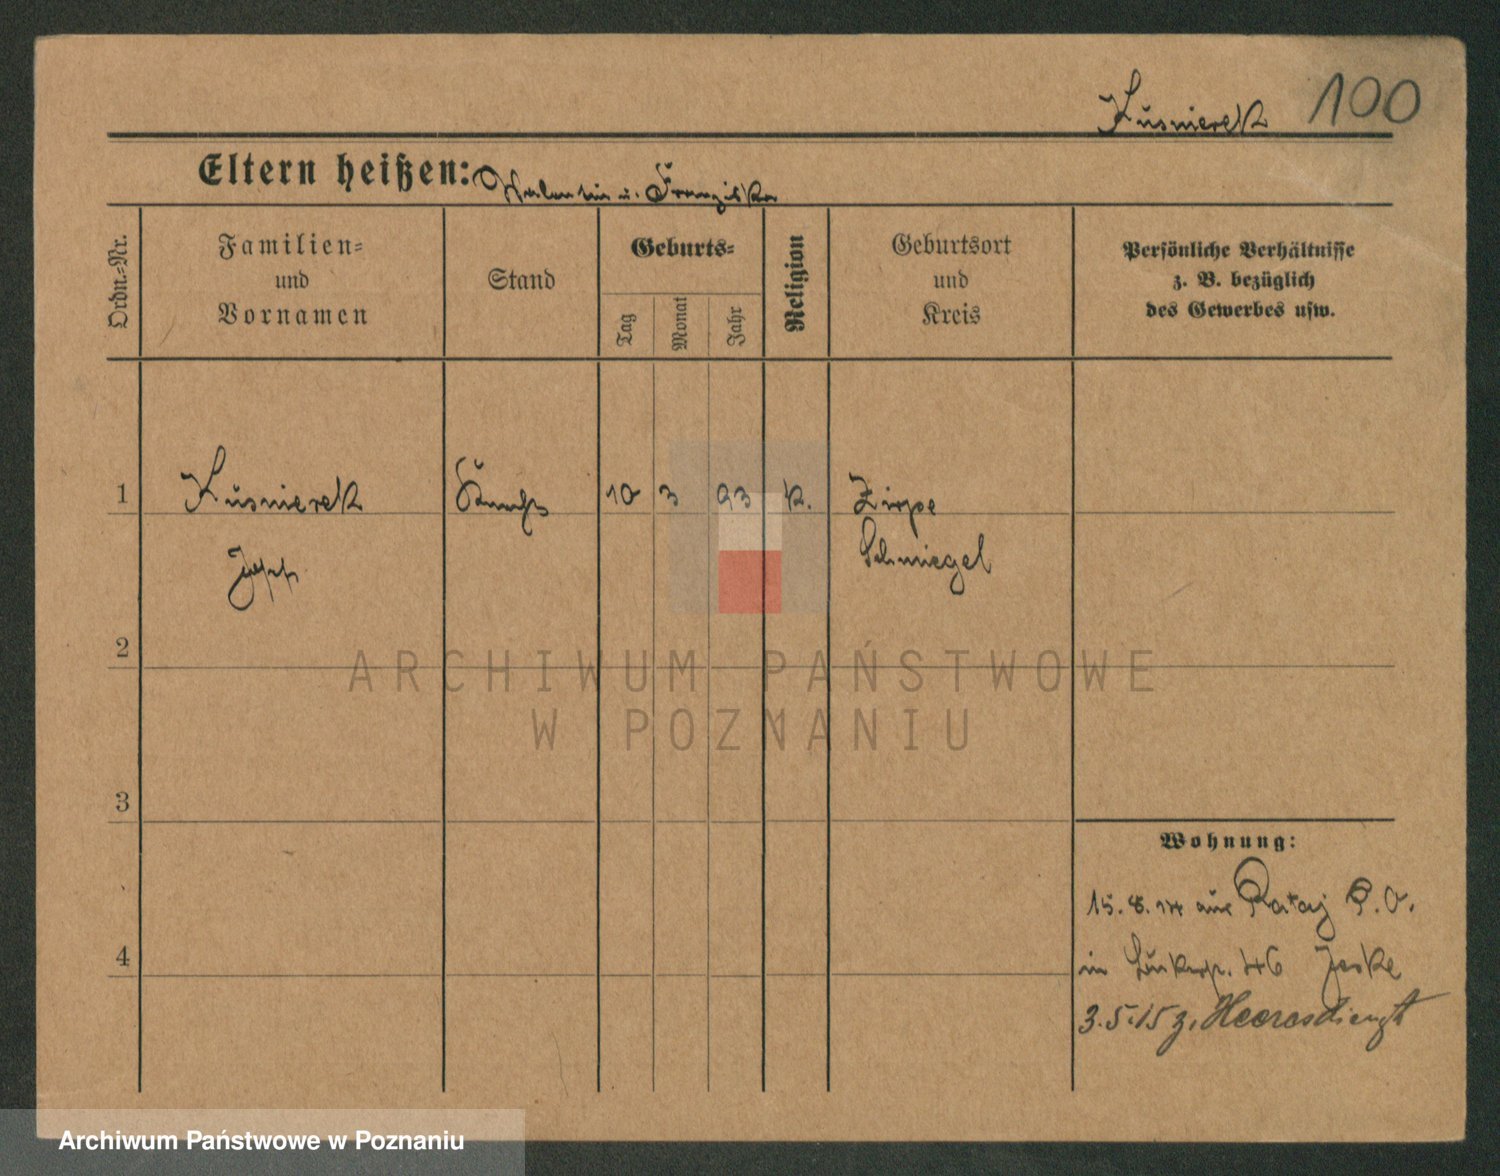 Kusnierek 100
Eltern heißen: Valentin u. Franziska
Ordn.=Nr.
Familien=
und
Vornamen
Stand
Geburts=
Tag
Monat
Jahr
Religion
Geburtsort
und
Kreis
Persönliche Verhältnisse
z. B. bezüglich
des Gewerbes usw.
1 Kusnierek 10 3 93 k. Zirpe
Josef Schmiegel
2
ARCHIWUM PAŃSTWOWE
W POZNANIU
3
Wohnung:
15. 8. 14 aus Rataj P. O.
4 in 46 Jeske
3.5.15 z. Heeresdienst
Archiwum Państwowe w Poznaniu